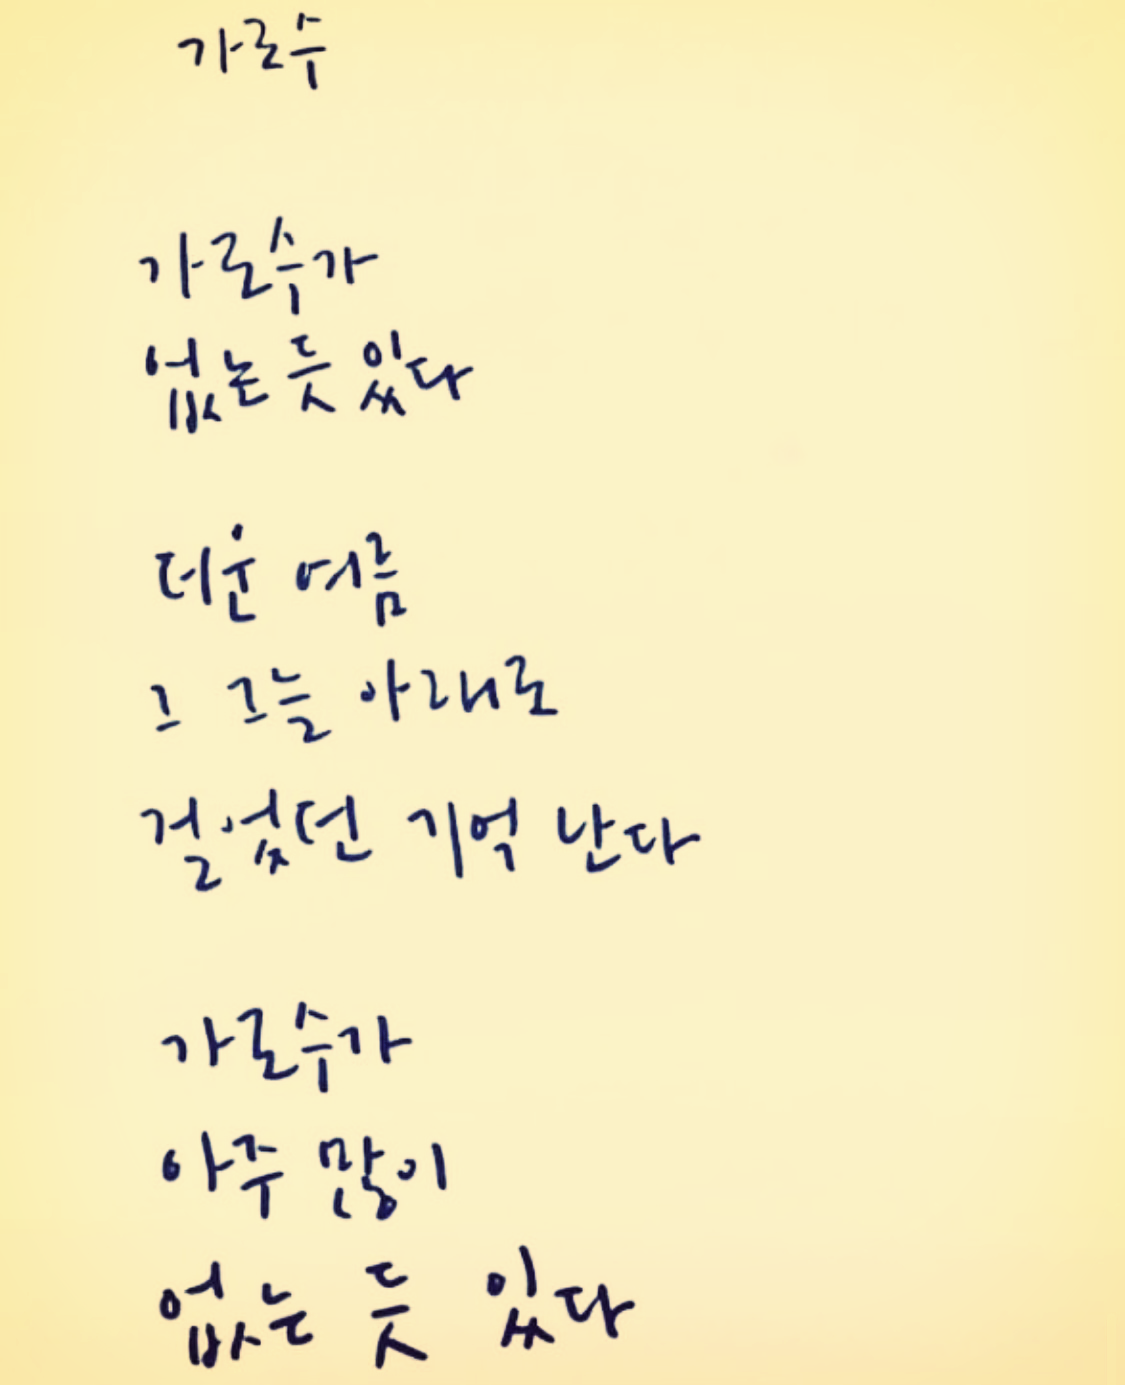 가로수
가로수가
없는 듯 있다
더운 여름
그 그늘 아래로
걸었던 기억 난다
가로수가
아주 많이
없는 듯 있다